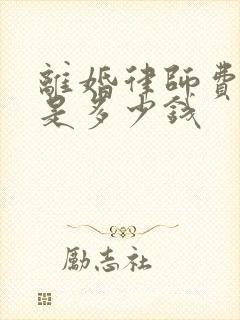 離婚律師費
是多少钱
勵志社